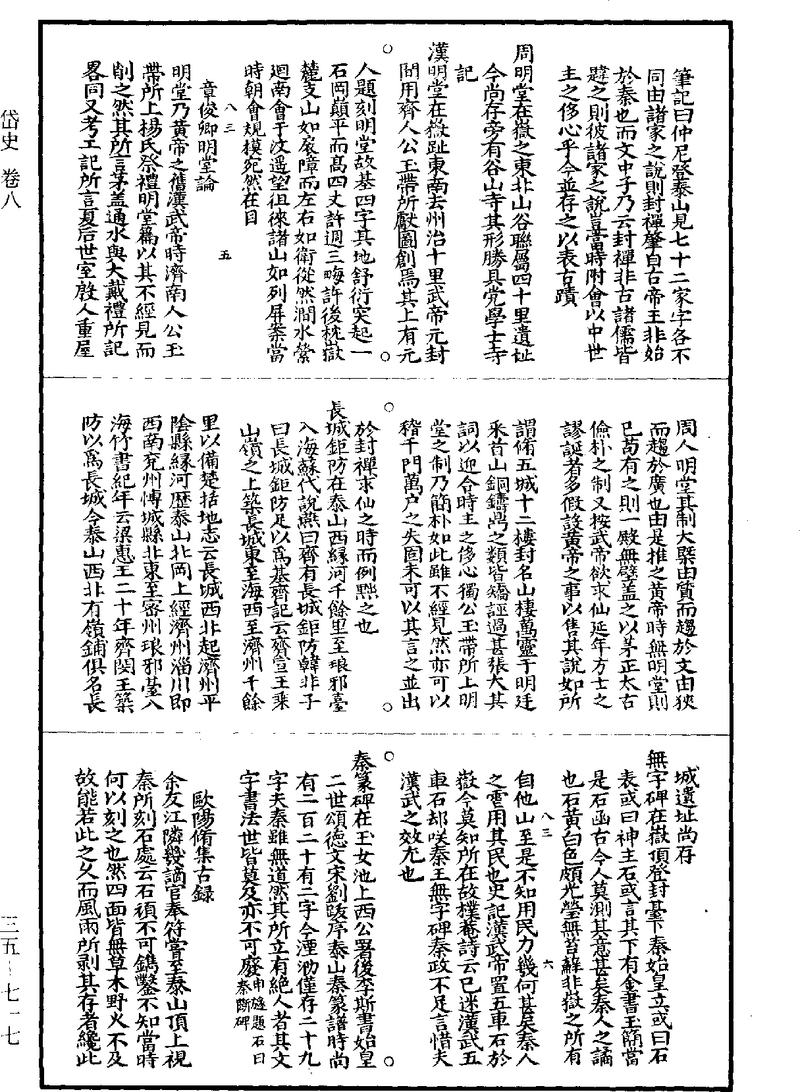 岱史 卷八
筆記曰仲尼登泰山見七十二家字各不
同由諸家之說則封禪肇自古帝王非始
於秦也而文中子乃云封禪非古諸儒皆
韙之則彼諸家之說豈當時附會以中世
主之侈心乎今並存之以表古蹟
周明堂在嶽之東北山谷聯屬四十里遺址
今尚存旁有谷山寺其形勝具党學士寺
記
漢明堂在嶽趾東南去州治十里武帝元封
間用齊人公玉帶所獻圖創焉其上有元
人題刻明堂故基四字其地舒衍突起一
石岡巔平而高四丈許週三畮許後枕嶽
麓支山如扆障而左右如衛從然澗水縈
迴南會于汶遥望徂徠諸山如列屏案當
時朝會規模宛然在目
八三
五
章俊卿明堂論
明堂乃黃帝之舊漢武帝時濟南人公玉
帶所上楊氏祭禮明堂篇以其不經見而
削之然其所言茅盖通水與大戴禮所記
畧同又考工記所言夏后世室殷人重屋
周人明堂其制大槩由質而趨於文由狹
而趨於廣也由是推之黃帝時無明堂則
已苟有之則一殿無壁蓋之以茅正太古
儉朴之制又按武帝欲求仙延年方士之
謬誕者多假設黃帝之事以售其說如所
謂脩五城十二樓封名山棲萬靈于明廷
釆首山銅鑄鼎之類皆矯誣過甚張大其
詞以迎合時主之侈心獨公玉帶所上明
堂之制乃簡朴如此雖不經見然亦可以
稽千門萬户之失固未可以其言之並出
於封禪求仙之時而例黜之也
長城鉅防在泰山西緣河千餘里至琅邪臺
入海蘇代說燕曰齊有長城鉅防韓非子
曰長城鉅防足以爲基齊記云齊宣王乘
山嶺之上築長城東至海西至濟州千餘
里以備楚括地志云長城西北起濟州平
陰縣緣河歷泰山北岡上經濟州淄川即
西南兖州愽城縣北東至密州琅邪臺入
海竹書紀年云梁惠王二十年齊閔王築
防以爲長城今泰山西北有嶺鋪俱名長
城遺址尚存
無字碑在嶽頂登封臺下秦始皇立或曰石
表或曰神主石或言其下有金書玉簡當
是石函古今人莫測其意甚矣秦人之譎
也石黃白色頗光瑩無苔蘚非嶽之所有
八三
六
自他山至是不知用民力幾何甚矣秦人
之雪用其民也史記漢武帝置五車石於
嶽今莫知所在故樸菴詩云已迷漢武五
車石却咲秦王無字碑秦政不足言惜夫
漢武之效尤也
秦篆碑在玉女池上西公署後李斯書始皇
二世頌德文宋劉跂序泰山秦篆譜時尚
有二百二十有二字今湮泐僅存二十九
字夫秦雖無道然其所立有絕人者其文
字書法世皆莫及亦不可廢申縫題石曰秦斷碑
歐陽脩集古録
余友江隣幾謫官奉符嘗至泰山頂上視
秦所刻石處云石頑不可鐫鑿不知當時
何以刻之也然四面皆無草木野火不及
故能若此之久而風雨所剥其存者纔此
三五－七一七